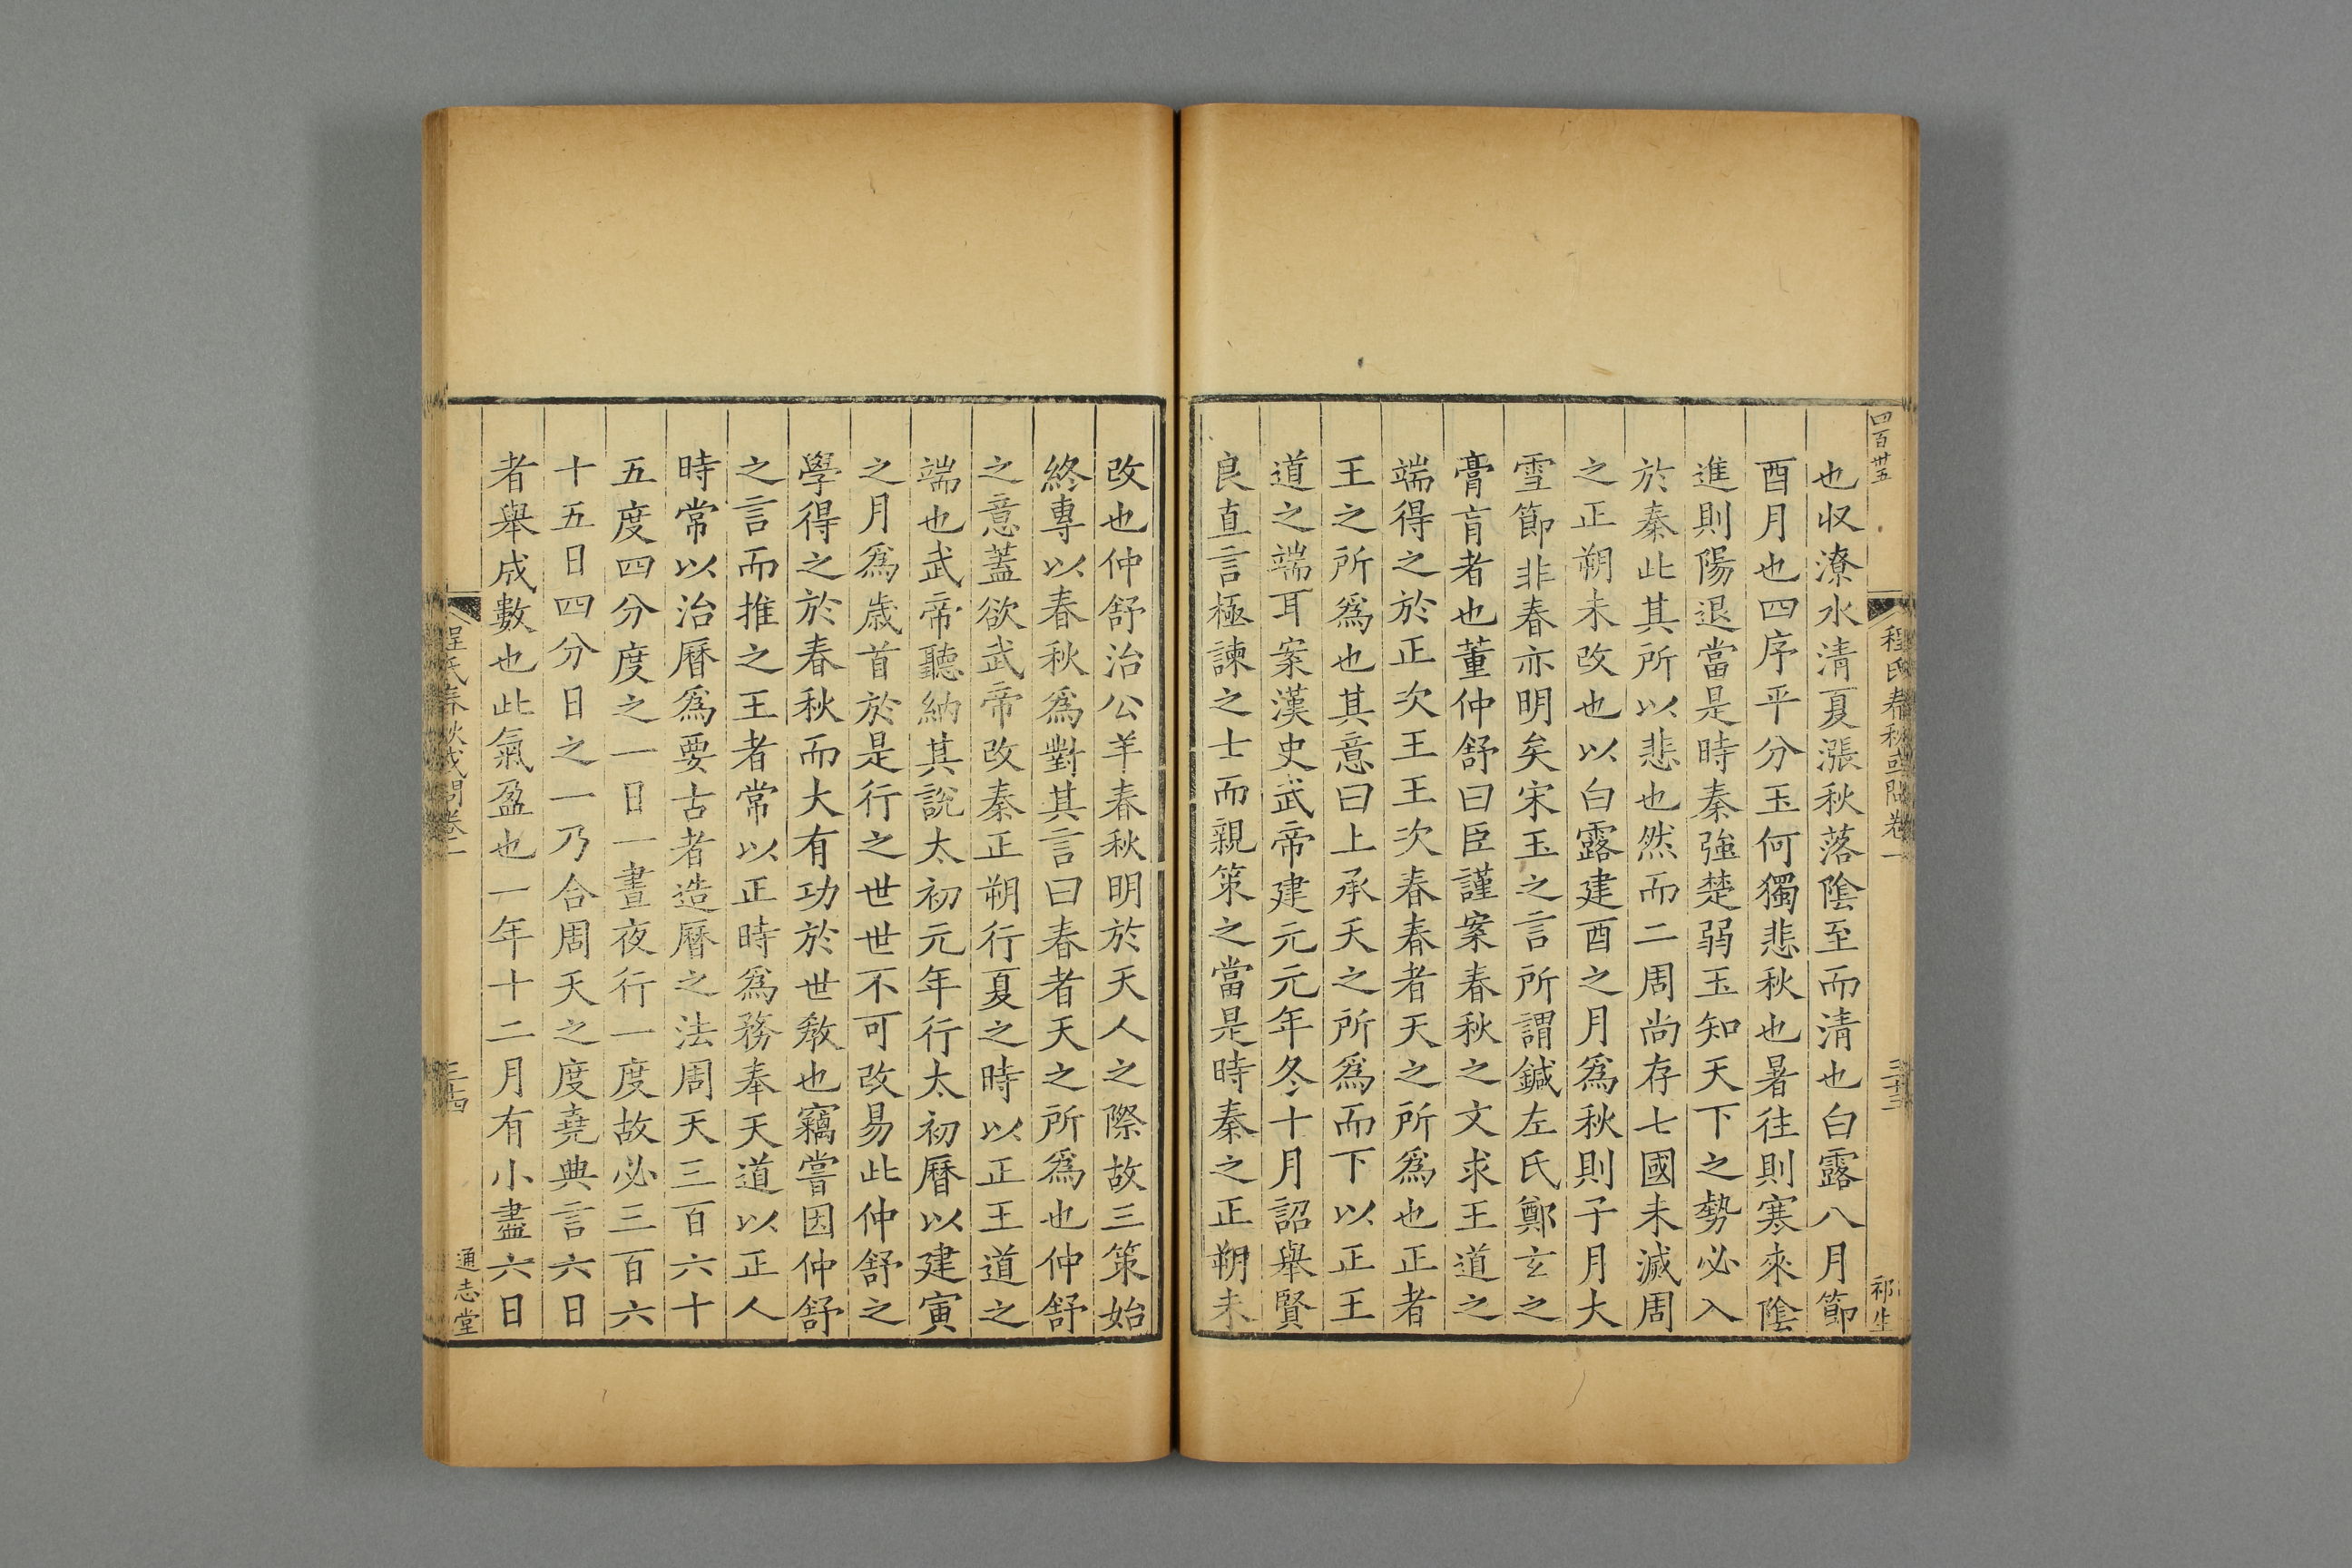 四百卅五
程氏春秋或問卷一
三十三
祁生
也収潦水清夏漲秋落陰至而清也白露八月節
酉月也四序平分玉何獨悲秋也暑往則寒來陰
進則陽退當是時秦強楚弱玉知天下之勢必入
於秦此其所以悲也然而二周尚存七國未滅周
之正朔未改也以白露建酉之月爲秋則子月大
雪節非春亦明矣宋玉之言所謂鍼左氏鄭玄之
膏肓者也董仲舒曰臣謹案春秋之文求王道之
端得之於正次王王次春春者天之所爲也正者
王之所爲也其意曰上承天之所爲而下以正王
道之端耳案漢史武帝建元元年冬十月詔舉賢
良直言極諫之士而親策之當是時秦之正朔未
改也仲舒治公羊春秋明於天人之際故三策始
終專以春秋爲對其言曰春者天之所爲也仲舒
之意蓋欲武帝改秦正朔行夏之時以正王道之
端也武帝聽納其說太初元年行太初曆以建寅
之月爲歲首於是行之世世不可改易此仲舒之
學得之於春秋而大有功於世敎也竊嘗因仲舒
之言而推之王者常以正時爲務奉天道以正人
時常以治曆爲要古者造曆之法周天三百六十
五度四分度之一日一晝夜行一度故必三百六
十五日四分日之一乃合周天之度堯典言六日
者舉成數也此氣盈也一年十二月有小盡六日
程氏春秋或問卷一
三十四
通志堂